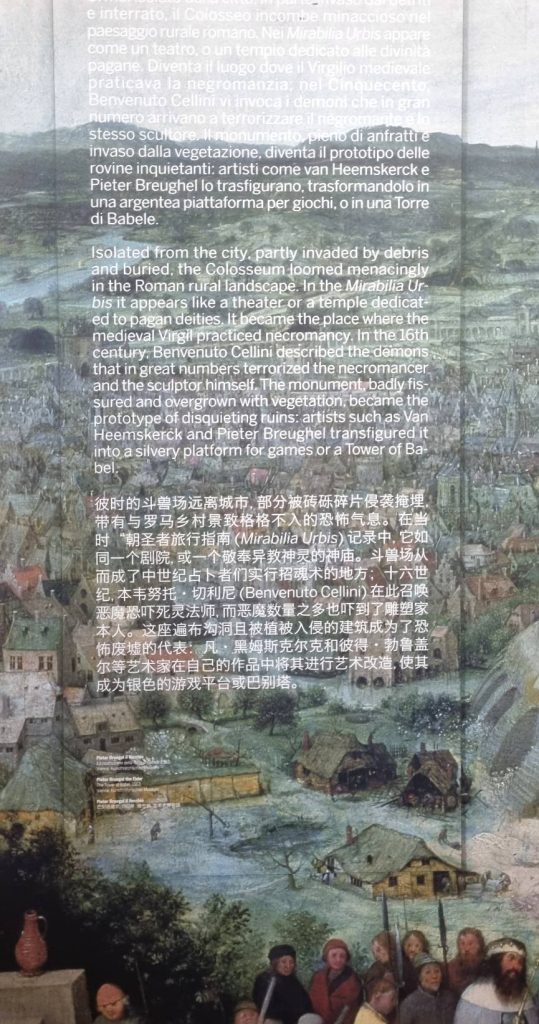 e interrato, il Colosseo incombe minaccioso nel
paesaggio rurale romano. Nei Mirabilia Urbis appare
come un teatro, o un tempio dedicato alle divinità
pagane. Diventa il luogo dove il Virgilio medievale
praticava la negromanzia; nel Cinquecento,
Benvenuto Cellini vi invoca i demoni che in gran
numero arrivano a terrorizzare il negromante e lo
stesso scultore. Il monumento, pieno di anfratti e
invaso dalla vegetazione, diventa il prototipo delle
rovine inquietanti: artisti come van Heemskerck e
Pieter Breughel lo trasfigurano, trasformandolo in
una argentea piattaforma per giochi, o in una Torre
di Babele.
Isolated from the city, partly invaded by debris
and buried, the Colosseum loomed menacingly
in the Roman rural landscape. In the Mirabilia Ur-
bis it appears like a theater or a temple dedicat-
ed to pagan deities. It became the place where the
medieval Virgil practiced necromancy. In the 16th
century, Benvenuto Cellini described the demons
that in great numbers terrorized the necromancer
and the sculptor himself. The monument, badly fis-
sured and overgrown with vegetation, became the
prototype of disquieting ruins: artists such as Van
Heemskerck and Pieter Breughel transfigured it
into a silvery platform for games or a Tower of Ba-
bel.
彼时的斗兽场远离城市, 部分被砖砾碎片侵袭掩埋,
带有与罗马乡村景致格格不入的恐怖气息。在当
时 “朝圣者旅行指南 (Mirabilia Urbis) 记录中, 它如
同一个剧院, 或一个敬奉异教神灵的神庙。斗兽场从
而成了中世纪占卜者们实行招魂术的地方; 十六世
纪, 本韦努托·切利尼 (Benvenuto Cellini) 在此召唤
恶魔恐吓死灵法师, 而恶魔数量之多也吓到了雕塑家
本人。这座遍布沟洞且被植被入侵的建筑成为了恐
怖废墟的代表: 凡·黑姆斯克尔克和彼得·勃鲁盖
尔等艺术家在自己的作品中将其进行艺术改造, 使其
成为银色的游戏平台或巴别塔。
Pieter Bruegel il Vecchio
Pieter Bruegel the Elder
Pieter Bruegel il Vecchio